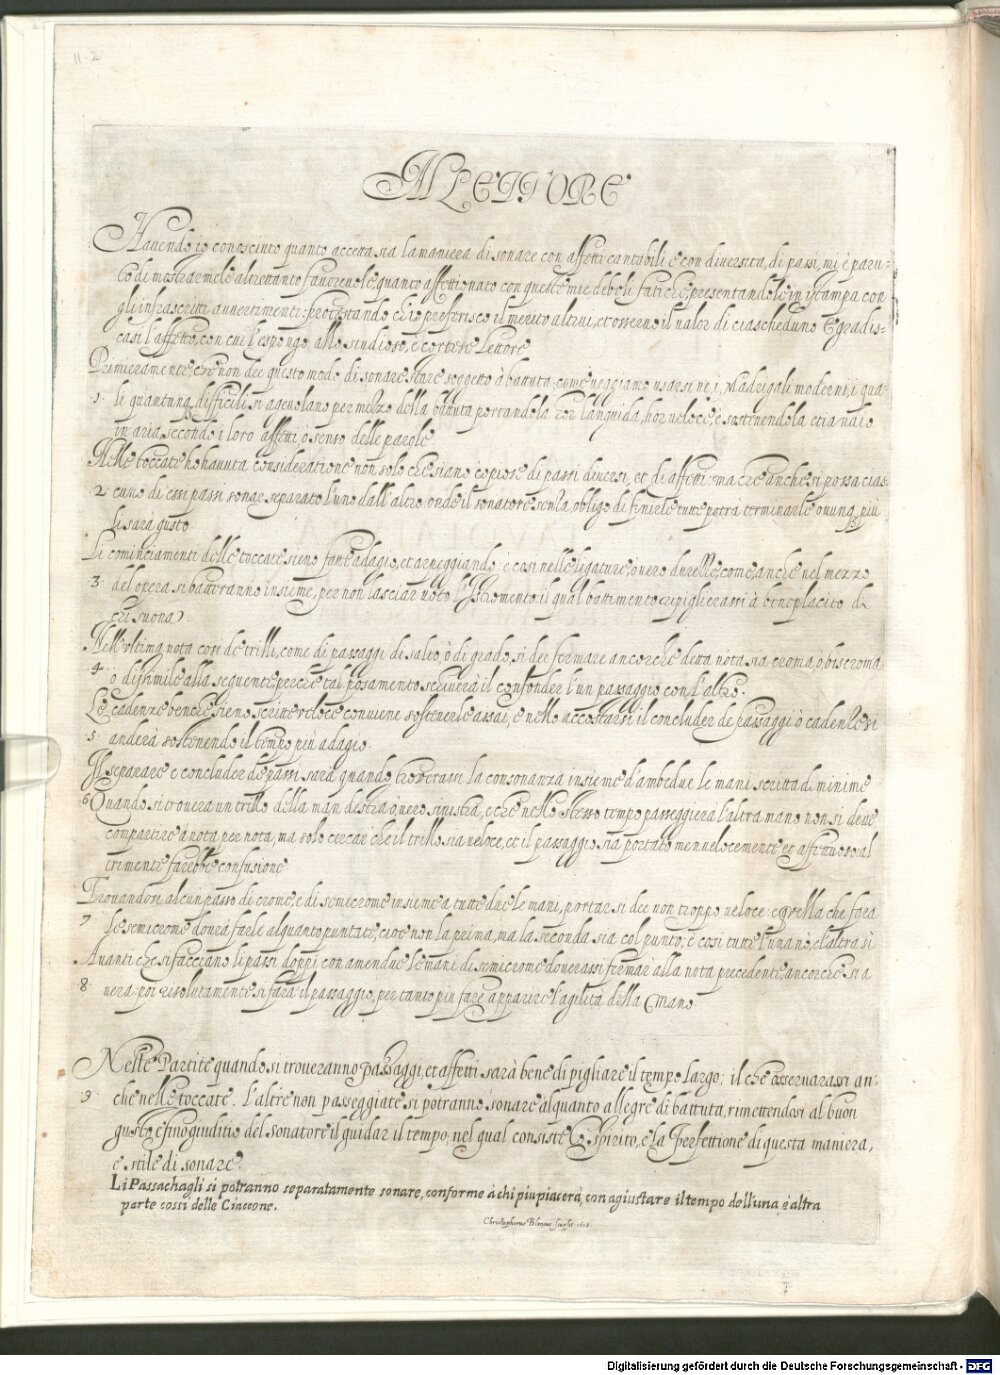 11-2
AL LETTORE
Hauendo io conosciuto quanto accetta sia la maniera di sonare con affetti cantabili e con diuersita, di passi, mi è paru=
to di mostrarmele altrettanto fauoreuole, quanto affettionato con queste mie deboli fatiche, presentandole in istampa con
gli infrascritti auuertimenti: protestando ch'io preferisco il merito altrui, et osseruo il ualor di ciascheduno. E gradis=
casi l'affetto, con cui l'espongo allo studioso, e cortese Lettore
Primieramente, che non dee questo modo di sonare stare soggetto à battuta, come ueggiamo usarsi ne i, Madrigali moderni, i qua=
1. li quantunq, difficili si ageuolano per mezzo della battuta portandola hor languida, hor ueloce, è sostenendola etiandio
in aria, secondo i loro affetti, ò senso delle parole
Nelle toccate ho hauuta consideratione non solo che siano copiose di passi diuersi, et di affetti: ma che anche si possa cias
2. cuno di essi passi sonar separato l'uno dall'altro: onde il sonatore senza obligo di finirle tutte potrà terminarle ouunq, piu
li sarà gusto.
Li cominciamenti delle toccate sieno fatte adagio, et arpeggiando: è cosi nelle ligature, ò uero durezze, come, anche nel mezzo
3. del opera si batteranno insieme, per non lasciar uoto l'Istromento: il qual battimento ripiglierassi à beneplacito di
chi suona.
Nell'ultima nota cosi de trilli, come di passaggi di salto, ò di grado, si dee fermare ancorche detta nota sia croma, ò biscroma
4. ò dissimile alla seguente: perche tal posamento schiuerà il confonder l'un passaggio con l'altro.
Le cadenze benche sieno scritte ueloce conuiene sostenerle assai, e nello accostarsi il concluder de passaggi ò cadenze si
5. anderà sostenendo il tempo più adagio.
Il separare e concluder de passi sarà quando trouerassi la consonanza insieme d'ambedue le mani scritta di minime
6 Quando si trouera un trillo della man destra, ò uero sinistra, e che nello stesso tempo passeggierà l'altra mano non si deue
compartire a nota per nota, ma solo cercar che il trillo sia ueloce, et il passaggio sia portato men uelocemente et affettuoso: al
trimente farebbe confusione
Trouandosi alcun passo di crome, e di semicrome insieme a tutte due le mani, portar si dee non troppo ueloce: e quella che farà
7 le semicrome dourà farle alquanto puntate, cioe non la prima, ma la seconda sia col punto: è cosi tutte l'una nò, e l'altra si
Auanti che si facciano li passi doppi con amendue le mani di semicrome douerassi fermar' alla nota precedente, ancorche sia
8. nera: poi risolutamente si farà il passaggio, per tanto piu fare apparire l'agilità della mano.
Nelle Partite quando si troueranno passaggi, et affetti sarà bene di pigliare il tempo largo; il che osseruarassi an=
9. che nelle toccate. L'altre non passeggiate si potranno sonare alquanto allegre di battuta, rimettendosi al buon
gusto e fino giuditio del sonatore il guidar il tempo; nel qual consiste lo spirito, e la perfettione di questa maniera,
e stile di sonare.
Li Passachagli si potranno separatamente sonare, conforme à chi piu piacerà, con agiustare il tempo dell'una, è altra
parte cossi delle Ciaccone.
Christophorus Blancus sculpsit. 1616.
Digitalisierung gefördert durch die Deutsche Forschungsgemeinschaft - DFG